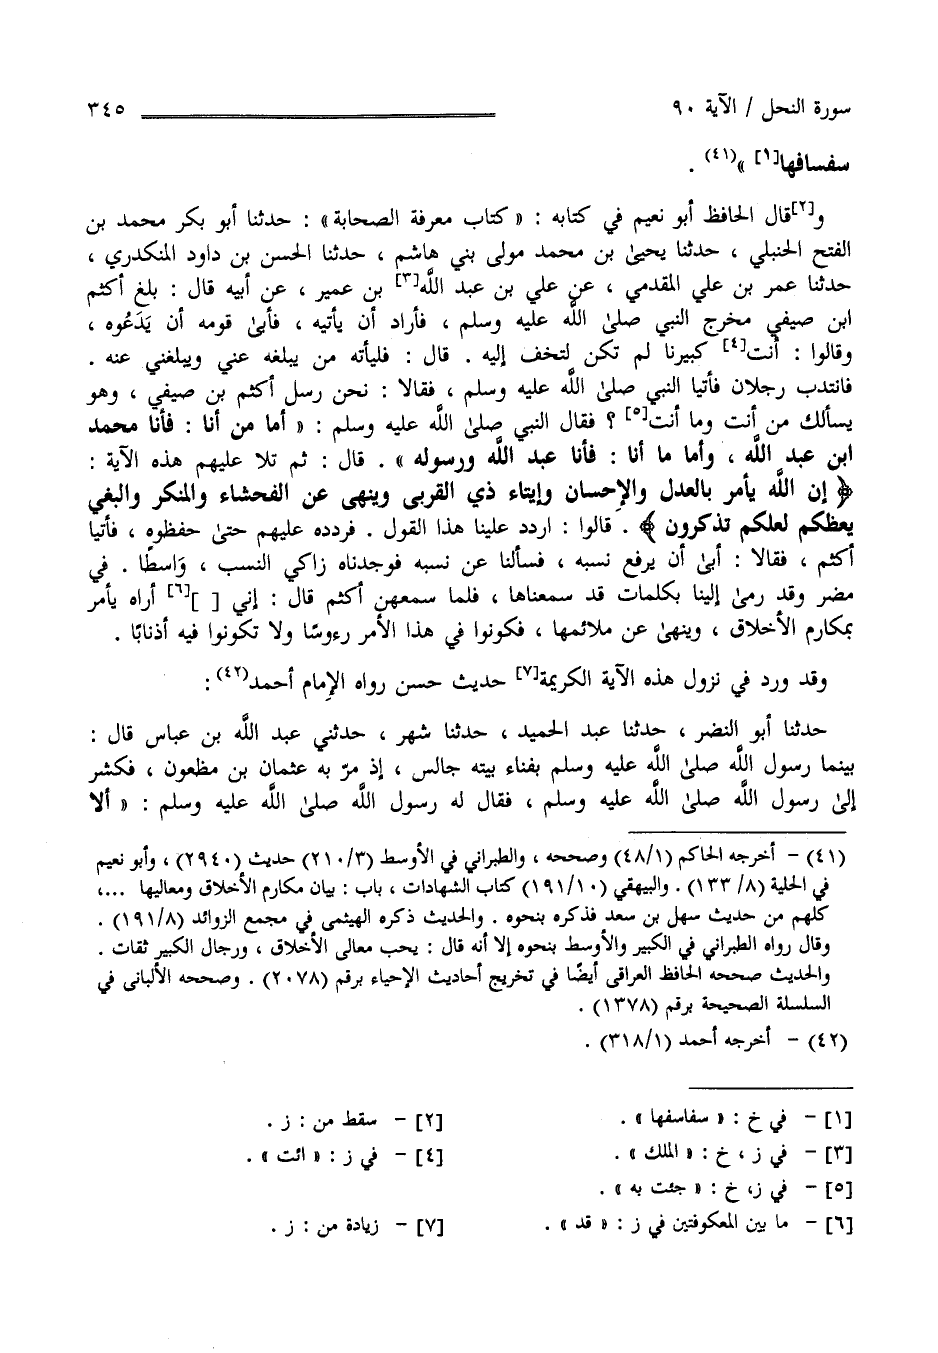 سورة النحل / الآية ٩٠ ٣٤٥
سفسافها[١] »(٤١) .
و[٢]قال الحافظ أبو نعيم في كتابه : « كتاب معرفة الصحابة» : حدثنا أبو بكر محمد بن
الفتح الحنبلي ، حدثنا يحيىٰ بن محمد مولى بني هاشم ، حدثنا الحسن بن داود المنكدري ،
حدثنا عمر بن علي المقدمي ، عن علي بن عبد اللَّه[٣] بن عمير ، عن أبيه قال : بلغ أكثم
ابن صيفي مخرج النبي صلىٰ اللَّه عليه وسلم ، فأراد أن يأتيه ، فأبىٰ قومه أن يَدَعُوه ،
وقالوا : أنت[٤] كبيرنا لم تكن لتخف إليه . قال : فليأته من يبلغه عني ويبلغني عنه .
فانتدب رجلان فأتيا النبي صلىٰ اللَّه عليه وسلم ، فقالا : نحن رسل أكثم بن صيفي ، وهو
يسألك من أنت وما أنت[٥] ؟ فقال النبي صلىٰ اللَّه عليه وسلم : « أما من أنا : فأنا محمد
ابن عبد اللَّه ، وأما ما أنا : فأنا عبد اللَّه ورسوله » . قال : ثم تلا عليهم هذه الآية :
﴿ إن اللَّه يأمر بالعدل والإحسان وإيتاء ذي القربى وينهى عن الفحشاء والمنكر والبغي
يعظكم لعلكم تذكرون ﴾ . قالوا : اردد علينا هذا القول . فردده عليهم حتىٰ حفظوه ، فأتيا
أكثم ، فقالا : أبىٰ أن يرفع نسبه ، فسألنا عن نسبه فوجدناه زاكي النسب ، وَاسطًا . في
مضر وقد رمىٰ إلينا بكلمات قد سمعناها ، فلما سمعهن أكثم قال : إني [ ][٦] أراه يأمر
بمكارم الأخلاق ، وينهىٰ عن ملائمها ، فكونوا في هذا الأمر رءوسًا ولا تكونوا فيه أذنابًا .
وقد ورد في نزول هذه الآية الكريمة[٧] حديث حسن رواه الإمام أحمد(٤٢) :
حدثنا أبو النضر ، حدثنا عبد الحميد ، حدثنا شهر ، حدثني عبد اللَّه بن عباس قال :
بينما رسول اللَّه صلىٰ اللَّه عليه وسلم بفناء بيته جالس ، إذ مرّ به عثمان بن مظعون ، فكشر
إلىٰ رسول اللَّه صلىٰ اللَّه عليه وسلم ، فقال له رسول اللَّه صلىٰ اللَّه عليه وسلم : « ألا
(٤١) - أخرجه الحاكم (٤٨/١) وصححه ، والطبراني في الأوسط (٢١٠/٣) حديث (٢٩٤٠) ، وأبو نعيم
في الحلية (٨/ ١٣٣) . والبيهقي (١٩١/١٠) كتاب الشهادات ، باب : بيان مكارم الأخلاق ومعاليها ...،
كلهم من حديث سهل بن سعد فذكره بنحوه . والحديث ذكره الهيثمى في مجمع الزوائد (١٩١/٨) .
وقال رواه الطبراني في الكبير والأوسط بنحوه إلا أنه قال : يحب معالى الأخلاق ، ورجال الكبير ثقات .
والحديث صححه الحافظ العراقى أيضًا في تخريج أحاديث الإحياء برقم (٢٠٧٨) . وصححه الألبانى في
السلسلة الصحيحة برقم (١٣٧٨) .
(٤٢) - أخرجه أحمد (٣١٨/١) .
[١] - في خ : « سفاسفها » . [٢] - سقط من : ز .
[٣] - في ز ، خ : « الملك » . [٤] - في ز : « ائت » .
[٥] - في ز، خ : « جئت به » .
[٦] - ما بين المعكوفتين في ز : « قد » . [٧] - زيادة من : ز .